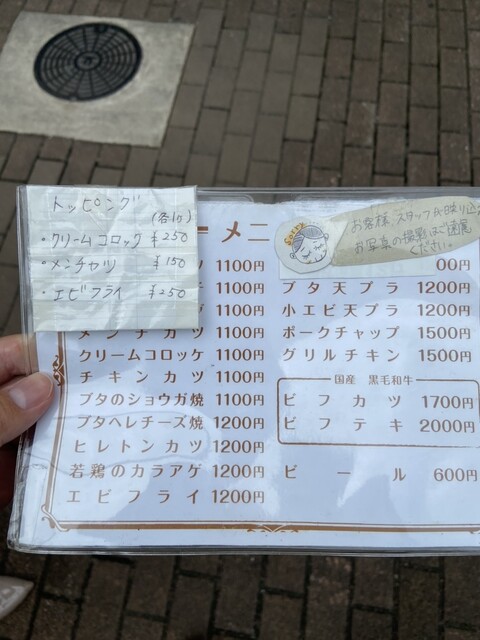 トッピング
(各1ヶ)
・クリームコロッケ ¥250
・メンチカツ ¥150
・エビフライ ¥250
ーメニ
お客様、スタッフが映り込む
お写真の撮影はご遠慮
ください。
1100円
1100円
1100円
メンチカツ 1100円
クリームコロッケ 1100円
チキンカツ 1100円
ブタのショウガ焼 1100円
ブタヘレチーズ焼 1200円
ヒレトンカツ 1200円
若鶏のカラアゲ 1200円
エビフライ 1200円
00円
ブタ天プラ 1200円
小エビ天プラ 1200円
ポークチャップ 1500円
グリルチキン 1500円
国産 黒毛和牛
ビフカツ 1700円
ビフテキ 2000円
ビール 600円